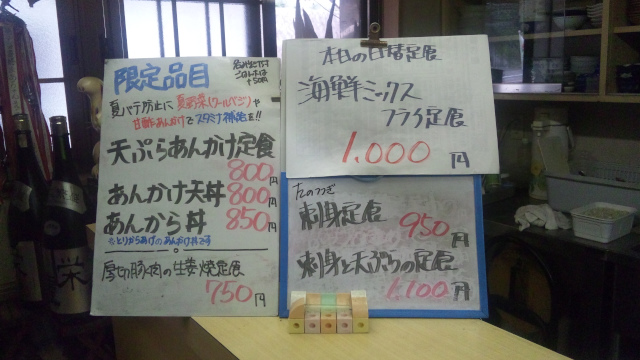 限定品目
夏バテ防止に夏野菜(ツールベジ)や
甘酢あんかけでスタミナ補給を!!
天ぷらあんかけ定食
800円
あんかけ天丼 800円
あんから丼 850円
※とりからあげのあんかけ丼です
厚切豚肉の生姜焼定食
750円
本日の日替定食
海鮮ミックス
フライ定食
1.000円
たのつぎ
刺身定食 950円
刺身と天ぷらの定食
1.100円
栄